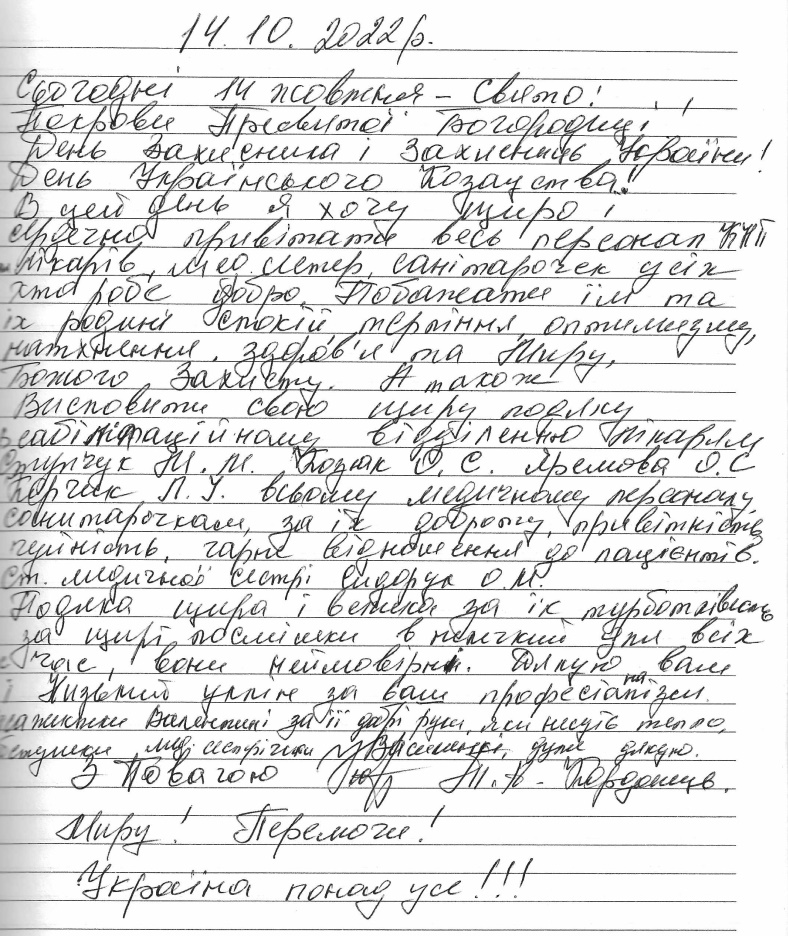 14.10.2022р.
Сьогодні 14 жовтня – свято!
Покрови Пресвятої Богородиці,
День Захисника і Захисниць України!
День Українського Козацтва!
В цей день я хочу щиро і
сердечно привітати весь персонал КНП
лікарів, мед. сестер, санітарочек усіх
хто робе добро. Побажати їм та
їх родині спокій, терпіння, оптимизму,
натхнення, здоров'я та Миру,
Божого Захисту. А також
Висловити свою щиру подяку
реабілітаційному відділенню лікарям
Ступчук Т.М. Козак О.С. Яремова О.С
Керчик Л.У. всьому медичному персоналу,
санитарочкам, за їх доброту, привітність,
чуйність, гарне відношення до пацієнтів.
Ст. медичної сестрі Сидорук О.М.
Подяка щира і велика за їх турботливість
за щирі посмішки в нелегкий для всіх
час, вони неймовірні. Дякую вам
і Низький уклін за ваш професіоналізм.
Валентині за її добрі руки, які несуть тепло,
мед. сестрічки дуже дякую.
З Повагою Т.А. Кордонець.
Миру! Перемоги!
Україна понад усе!!!